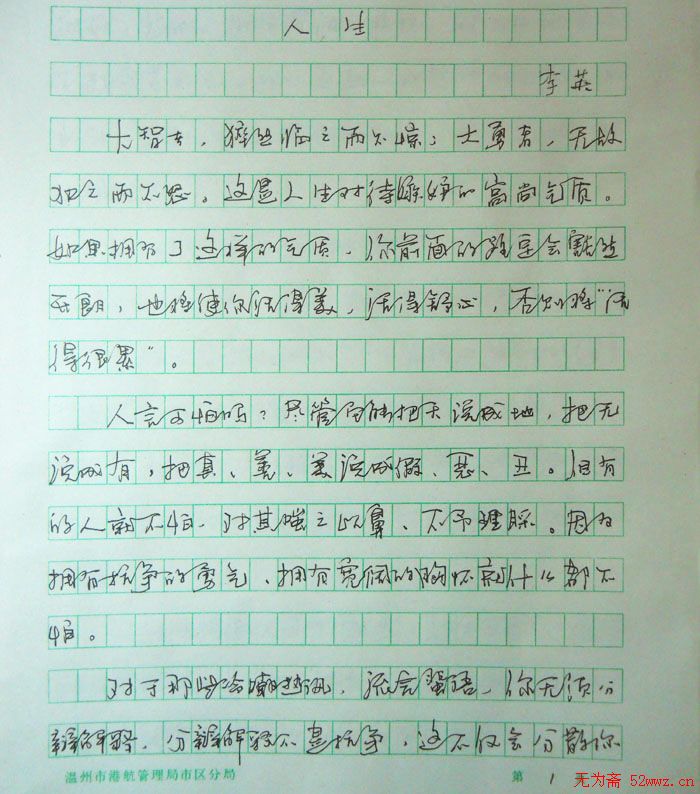 人生
李英
大智者，猝然临之而不惊；大勇者，无故
加之而不怒。这是人生对待 的高尚气质。
如果拥有了这样的气质，你前面的路定会豁然
开朗，也将使你活得美，活得舒心，否则将“活
得很累”。
人言可怕吗？尽管它能把天说成地，把无
说成有，把真、善、美说成假、恶、丑。但有
的人就不怕，对其嗤之以鼻、不予理睬。因为
拥有抗争的勇气，拥有宽阔的胸怀就什么都不
怕。
对于那些冷嘲热讽，流言蜚语，你无须分
辩解释，分辩解释不是抗争，这不仅会分散你
温州市港航管理局市区分局
第 1
无为斋 52wwz.cn